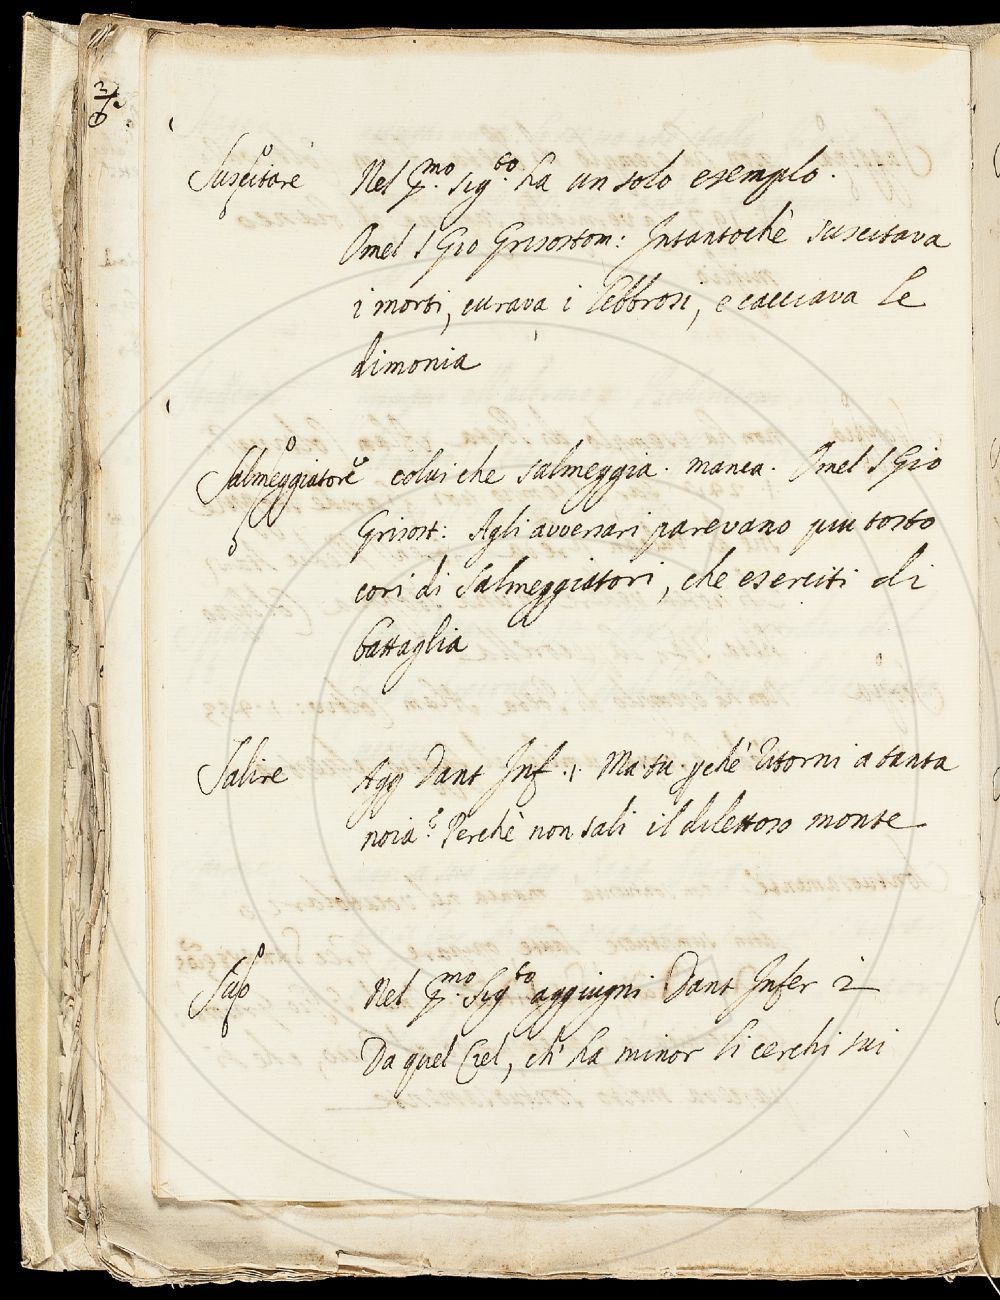 Suscitare Nel p.mo sig.to ha un solo esemplo.
Omel S Gio Grisostom: Intantochè suscitava
i morti, curava i lebbrosi, e cacciava le
dimonia
Salmeggiatore colui che salmeggia. manca. Omel S Gio
Grisost: Agli avversari parevano piu tosto
cori di Salmeggiatori, che eserciti di
battaglia
Salire Agg Dant Inf. 1. Ma tu pchè ritorni a tanta
noia? Perchè non sali il dilettoso monte
Suo Nel p.mo Sig.to aggiugni Dant Infer 2
Da quel Ciel, ch' ha minor li cerchi sui